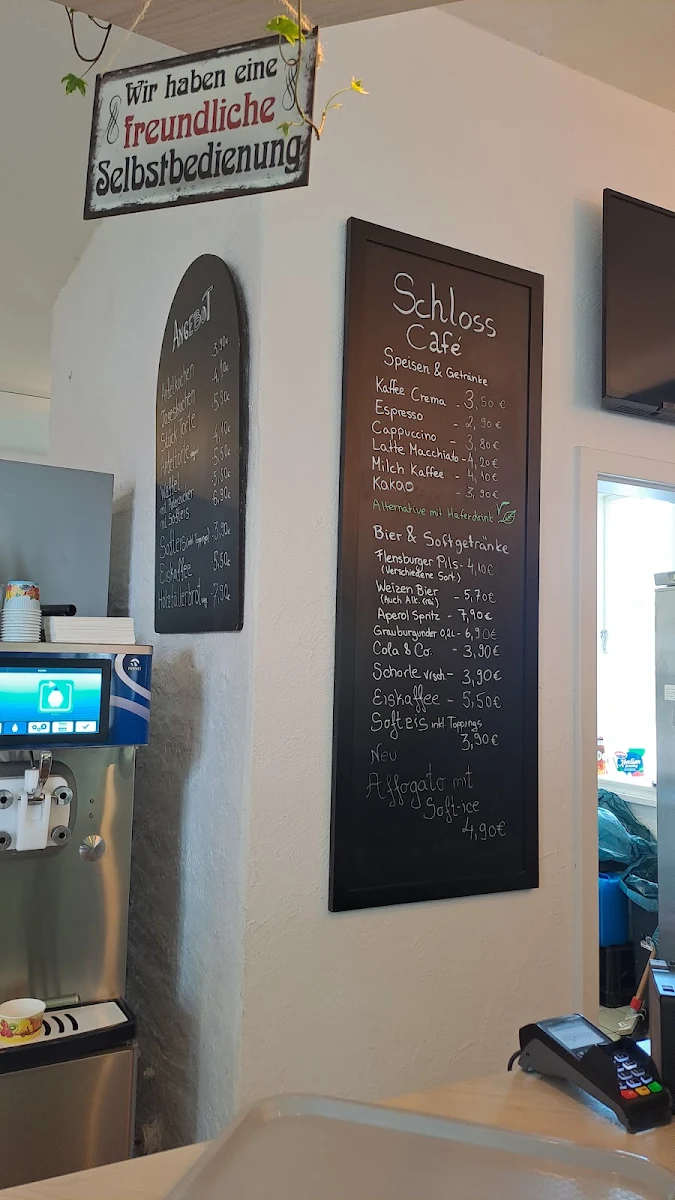 Wir haben eine
freundliche
Selbstbedienung
ANGEBOT
Apfelkuchen 3,90€
4,10€
Stück Torte 5,50€
4,10€
Waffel 5,50€
mit Puderzucker 5,50€
mit Softeis 6,90€
Softeis (inkl. Toppings) 3,90€
Eiskaffee 5,50€
Holzfällerbrot 7,90€
Schloss
Café
Speisen & Getränke
Kaffee Crema - 3,50€
Espresso - 2,90€
Cappuccino - 3,80€
Latte Macchiato - 4,20€
Milch Kaffee - 4,10€
Kakao - 3,90€
Alternative mit Haferdrink
Bier & Softgetränke
Flensburger Pils - 4,10€
(Verschiedene Sort.)
Weizen Bier - 5,70€
(Auch Alk. frei)
Aperol Spritz - 7,90€
Grauburgunder 0,2l - 6,90€
Cola & Co. - 3,90€
Schorle vrsch. - 3,90€
Eiskaffee - 5,50€
Softeis inkl. Toppings
3,90€
Neu
Affogato mit
Soft-ice
4,90€